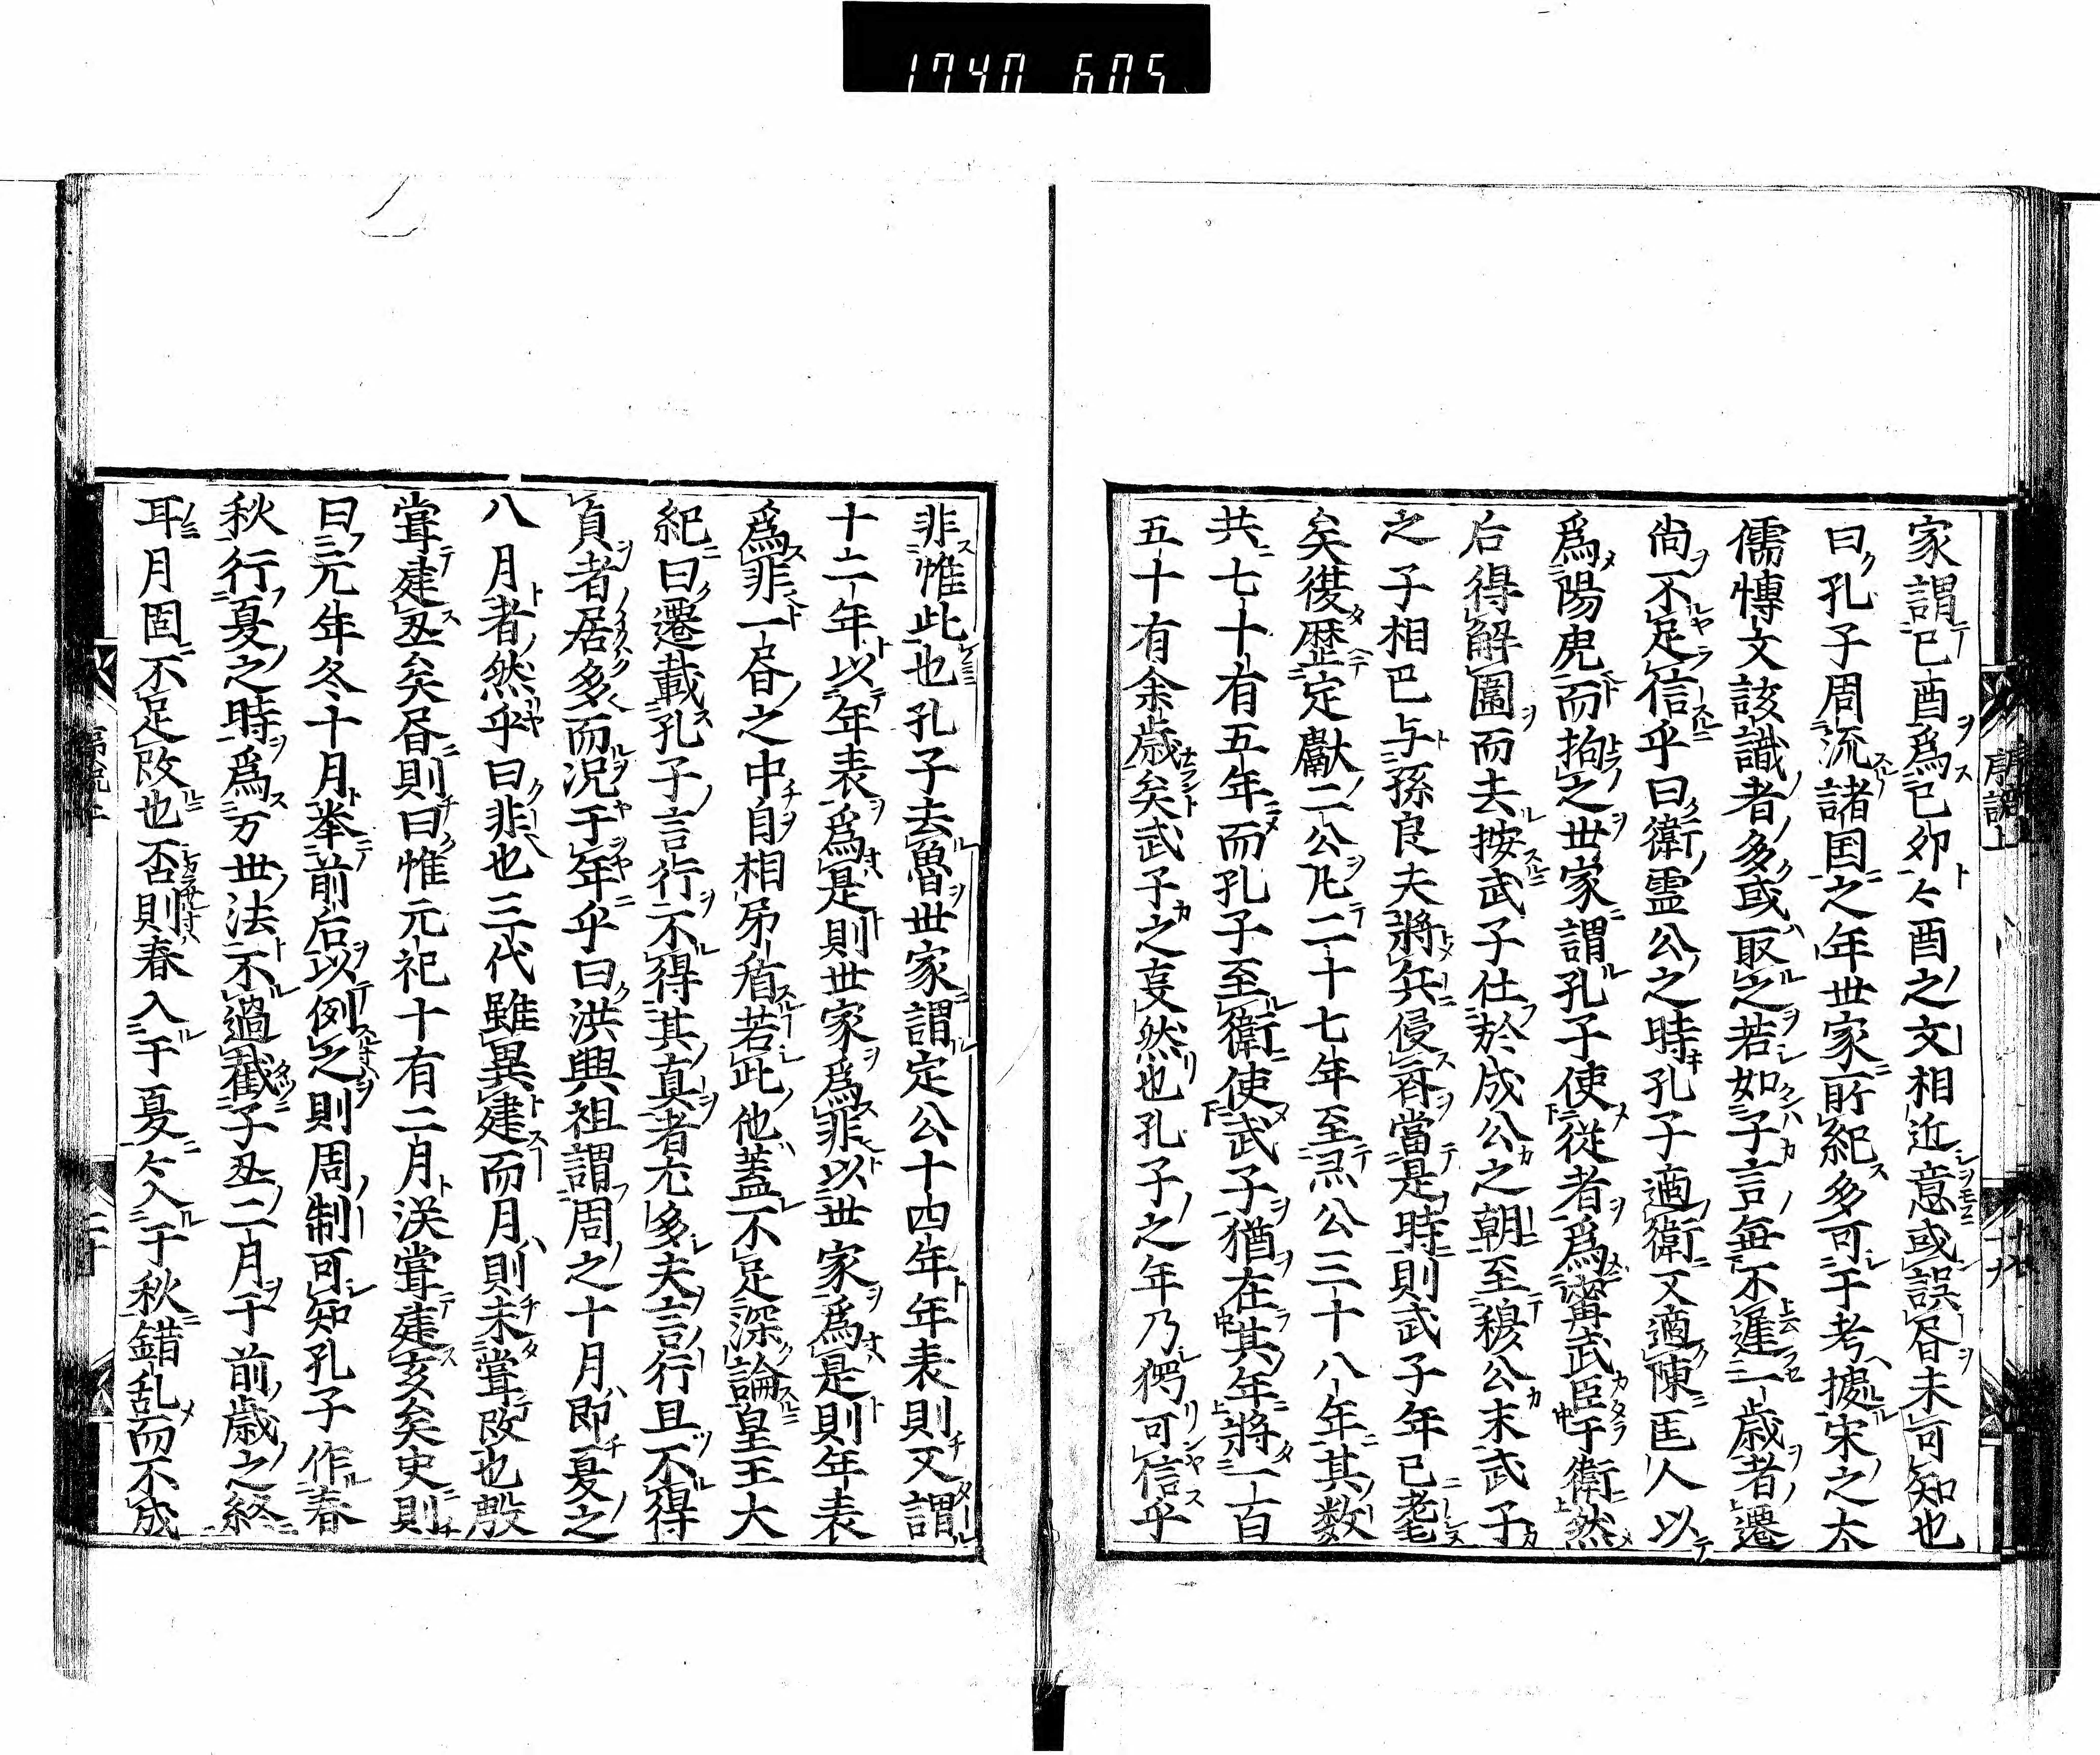 1740 605
家謂已酉爲已卯〻酉之文相近意或誤昏未可知也
曰孔子周流諸国之年世家所紀多可于考據宋之太
儒愽文該識者多或取之若如子言毎不遲一歳者遷
尚不足信乎曰衛霊公之時孔子適衛又適陳匡人以
爲陽虎而拘之世家謂孔子使從者爲甯武臣于衛然
后得解圍而去按武子仕於成公之朝至穆公末武子
之子相已与孫良夫將兵侵齐當是時則武子年已老
矣後歴定獻二公凡二十七年至灵公三十八年其数
共七十有五年而孔子至衛使武子猶在其年將一百
五十有余歳矣武子之妄然也孔子之年乃愕可信乎
非惟此也孔子去魯世家謂定公十四年年表則又謂
十二年以年表爲是則世家爲非以世家爲是則年表
爲非一昏之中自相矛盾若此他蓋不足深論皇王大
紀曰遷載孔子言行不得其真者尤多夫言行且不得
真者居多而况于年乎曰洪興祖謂周之十月即夏之
八月者然乎曰非也三代雖異建而月則未甞改也殷
甞建丑矣昏則曰惟元祀十有二月㳄甞建亥矣史則
曰元年冬十月举前后以例之則周制可知孔子作春
秋行夏之時爲万世法不過截子丑二月于前歳之終
耳月固不足改也否則春入于夏〻入于秋錯乱而不成